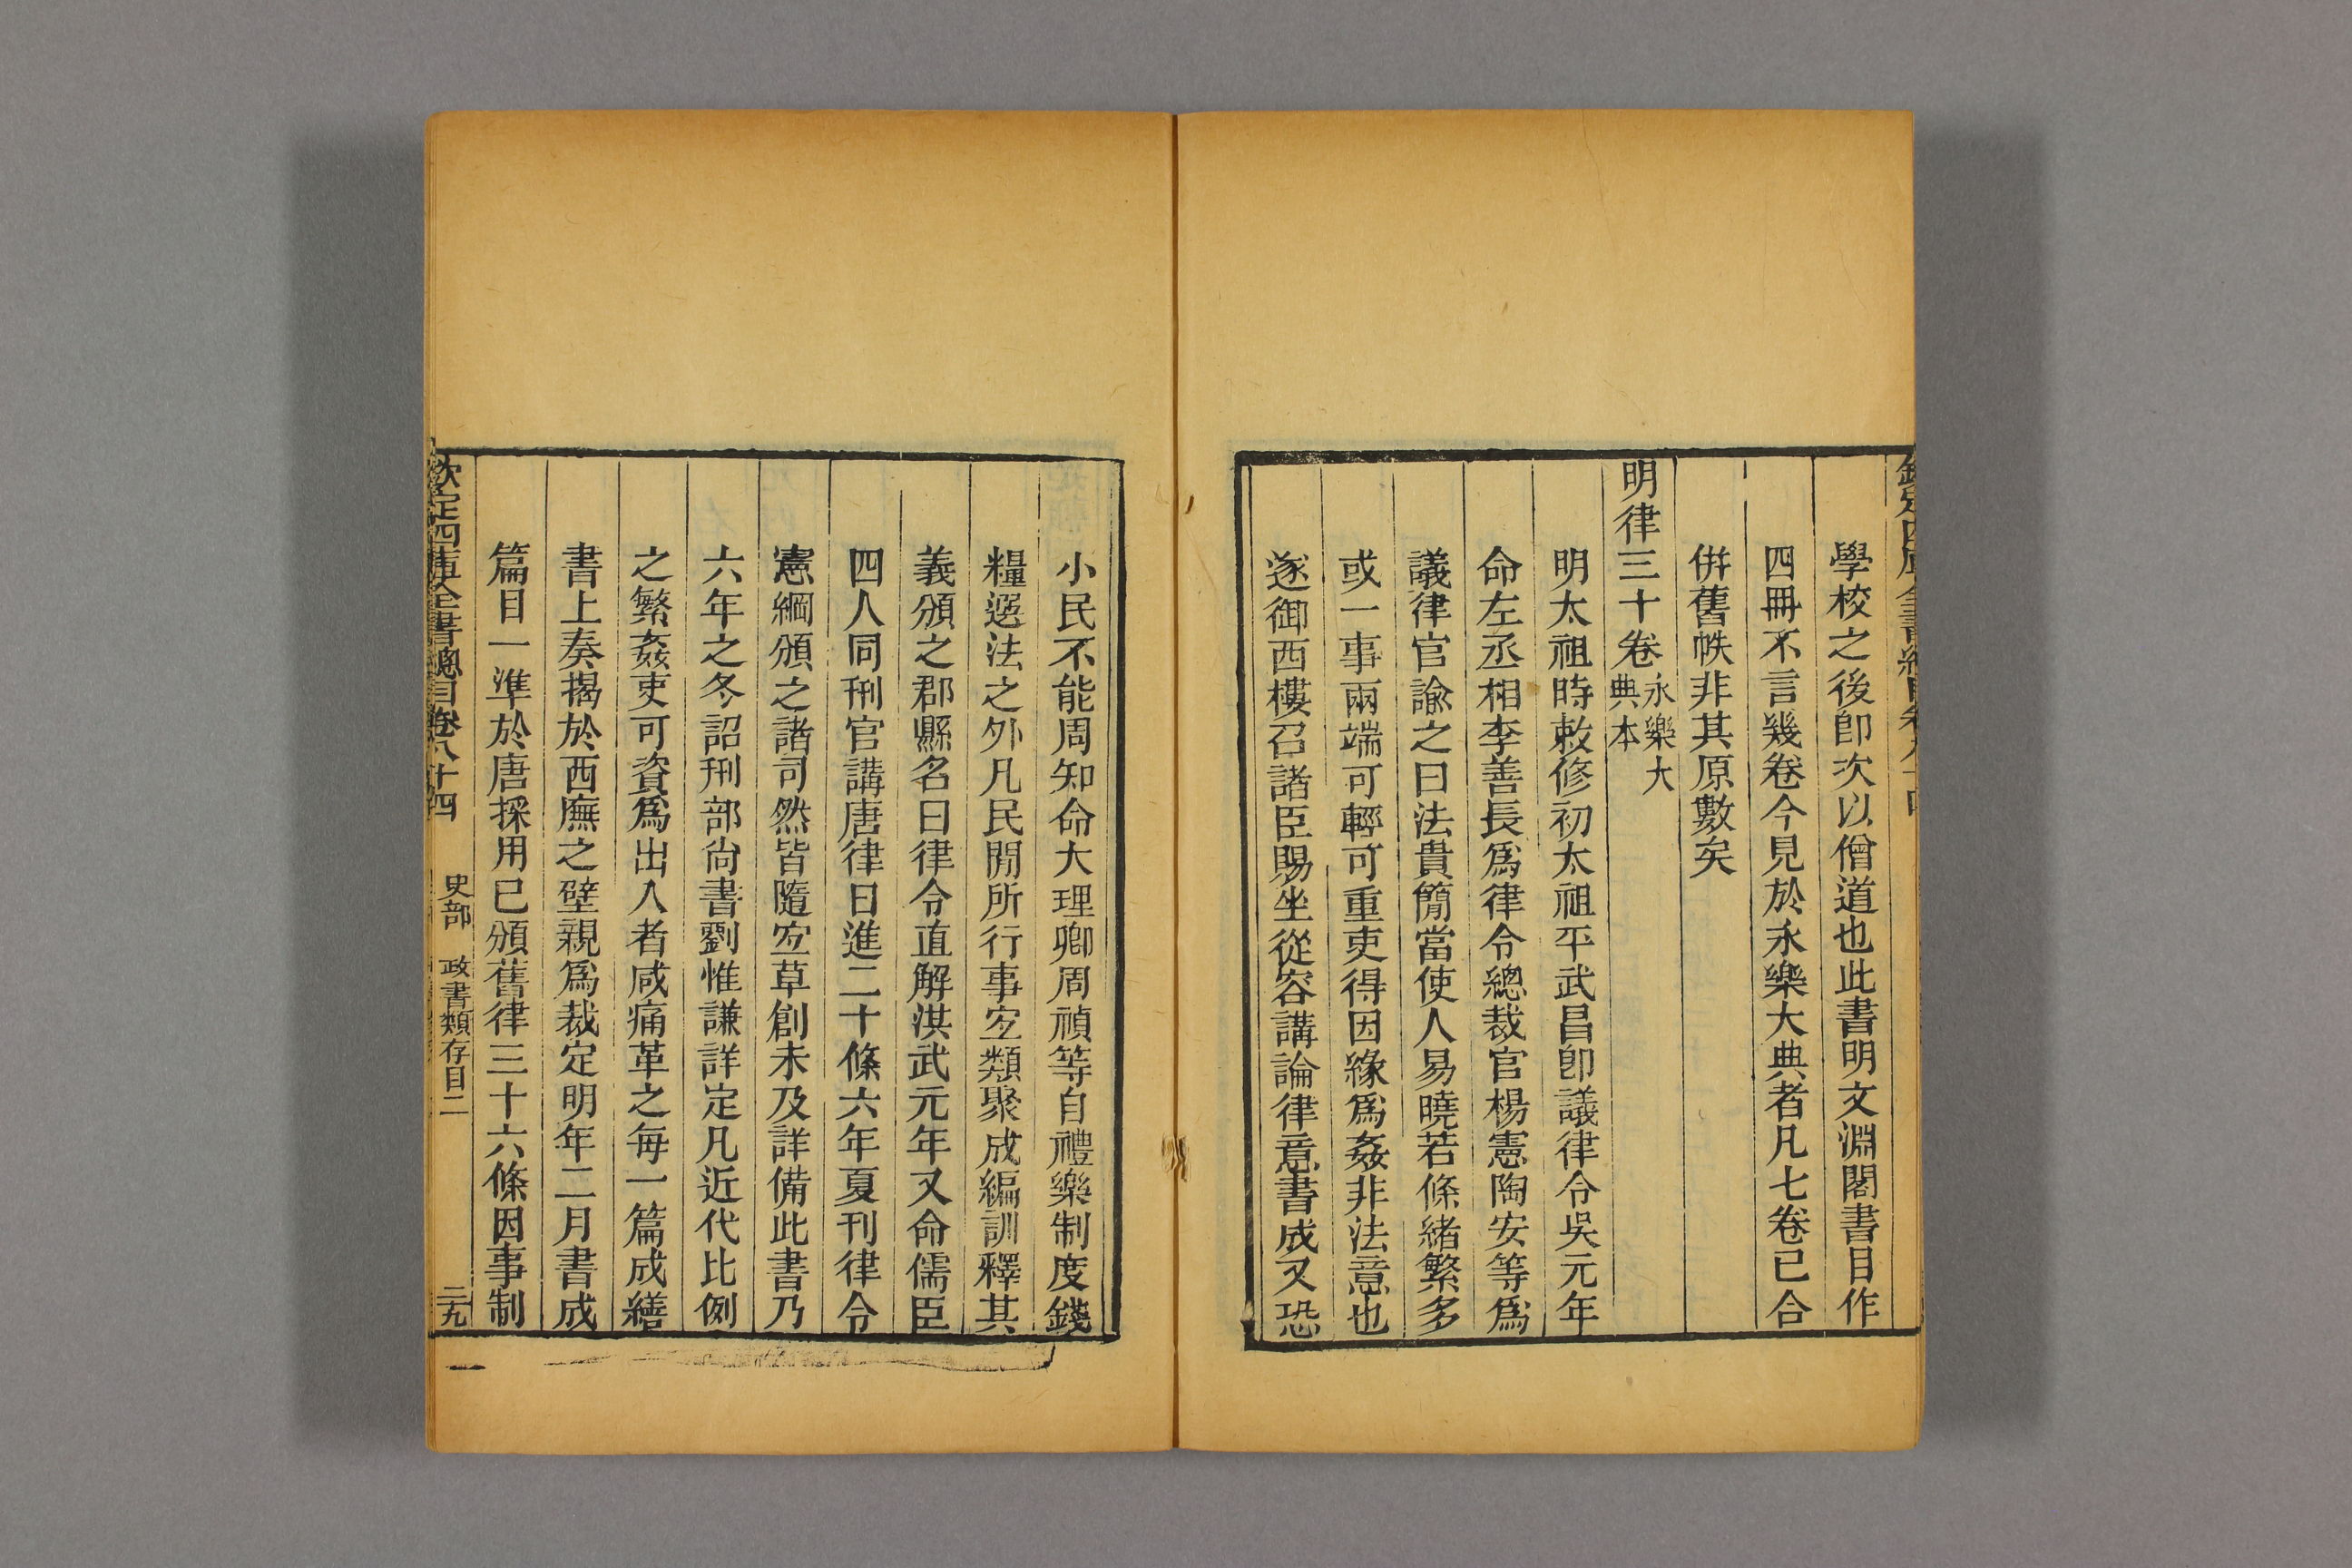 學校之後卽次以僧道也此書明文淵閣書目作
四冊不言幾卷今見於永樂大典者凡七卷已合
倂舊帙非其原數矣
明律三十卷永樂大典本
明太祖時敕修初太祖平武昌卽議律令吳元年
命左丞相李善長爲律令總裁官楊憲陶安等爲
議律官諭之曰法貴簡當使人易曉若條緒繁多
或一事兩端可輕可重吏得因緣爲姦非法意也
遂御西樓召諸臣賜坐從容講論律意書成又恐
小民不能周知命大理卿周禎等自禮樂制度錢
糧選法之外凡民閒所行事宜類聚成編訓釋其
義頒之郡縣名曰律令直解洪武元年又命儒臣
四人同刑官講唐律日進二十條六年夏刊律令
憲綱頒之諸司然皆隨宜草創未及詳備此書乃
六年之冬詔刑部尙書劉惟謙詳定凡近代比例
之繁姦吏可資爲出入者咸痛革之每一篇成繕
書上奏揭於西廡之壁親爲裁定明年二月書成
篇目一準於唐採用已頒舊律三十六條因事制
欽定四庫全書總目卷八十四 史部 政書類存目二 二九